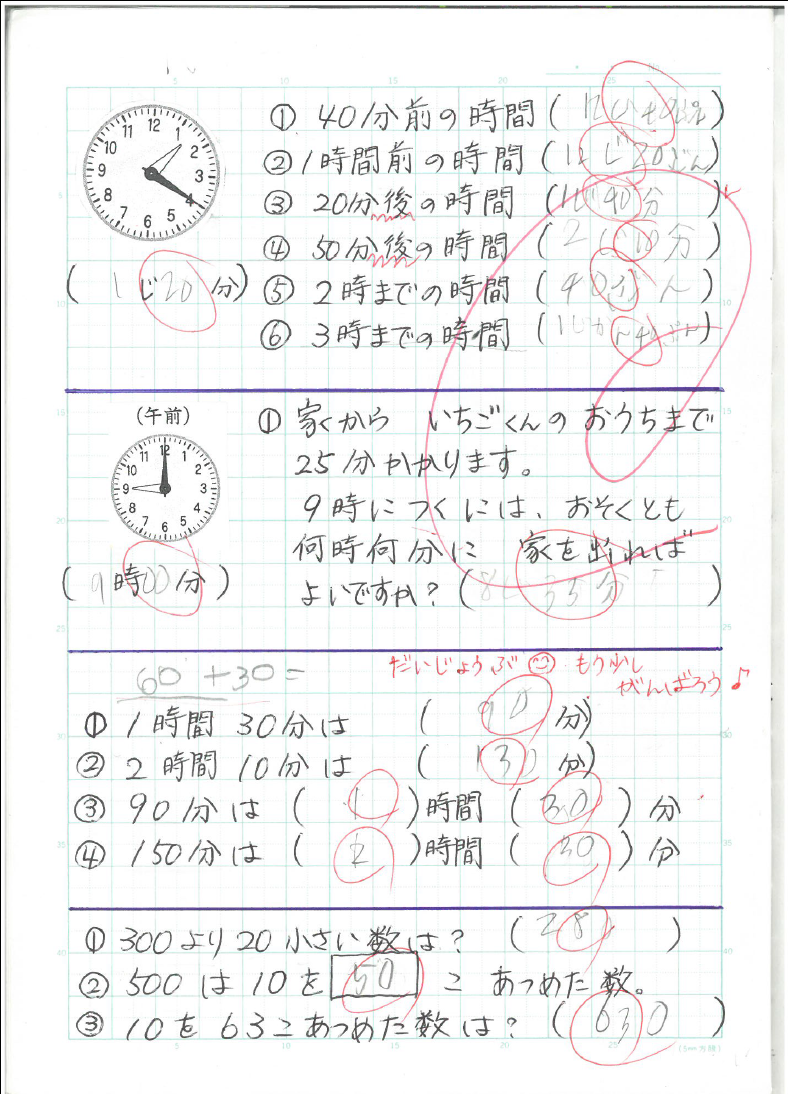 ① 40分前の時間 (12じ40ぷん)
② 1時間前の時間 (12じ20ぷん)
③ 20分後の時間 (1じ40分)
④ 50分後の時間 (2じ10分)
(1じ20分)
⑤ 2時までの時間 (40ぷん)
⑥ 3時までの時間 (1じかん40ぷん)
(午前)
(9時00分)
① 家から いちごくんの おうちまで
25分かかります。
9時に つくには、おそくとも
何時何分に 家を出れば
よいですか? (8じ35分)
だいじょうぶ もう少し
がんばろう♪
60+30=
① 1時間 30分は (90分)
② 2時間 10分は (130分)
③ 90分は (1)時間 (30)分
④ 150分は (2)時間 (30)分
① 300より20小さい数は? (28)
② 500は10を 50 こ あつめた数。
③ 10を63こあつめた数は? (630)